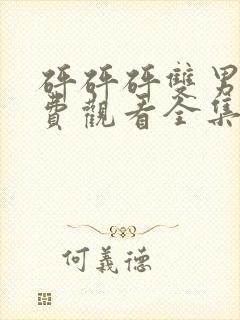 砰砰砰雙男
費觀看全集
何義德